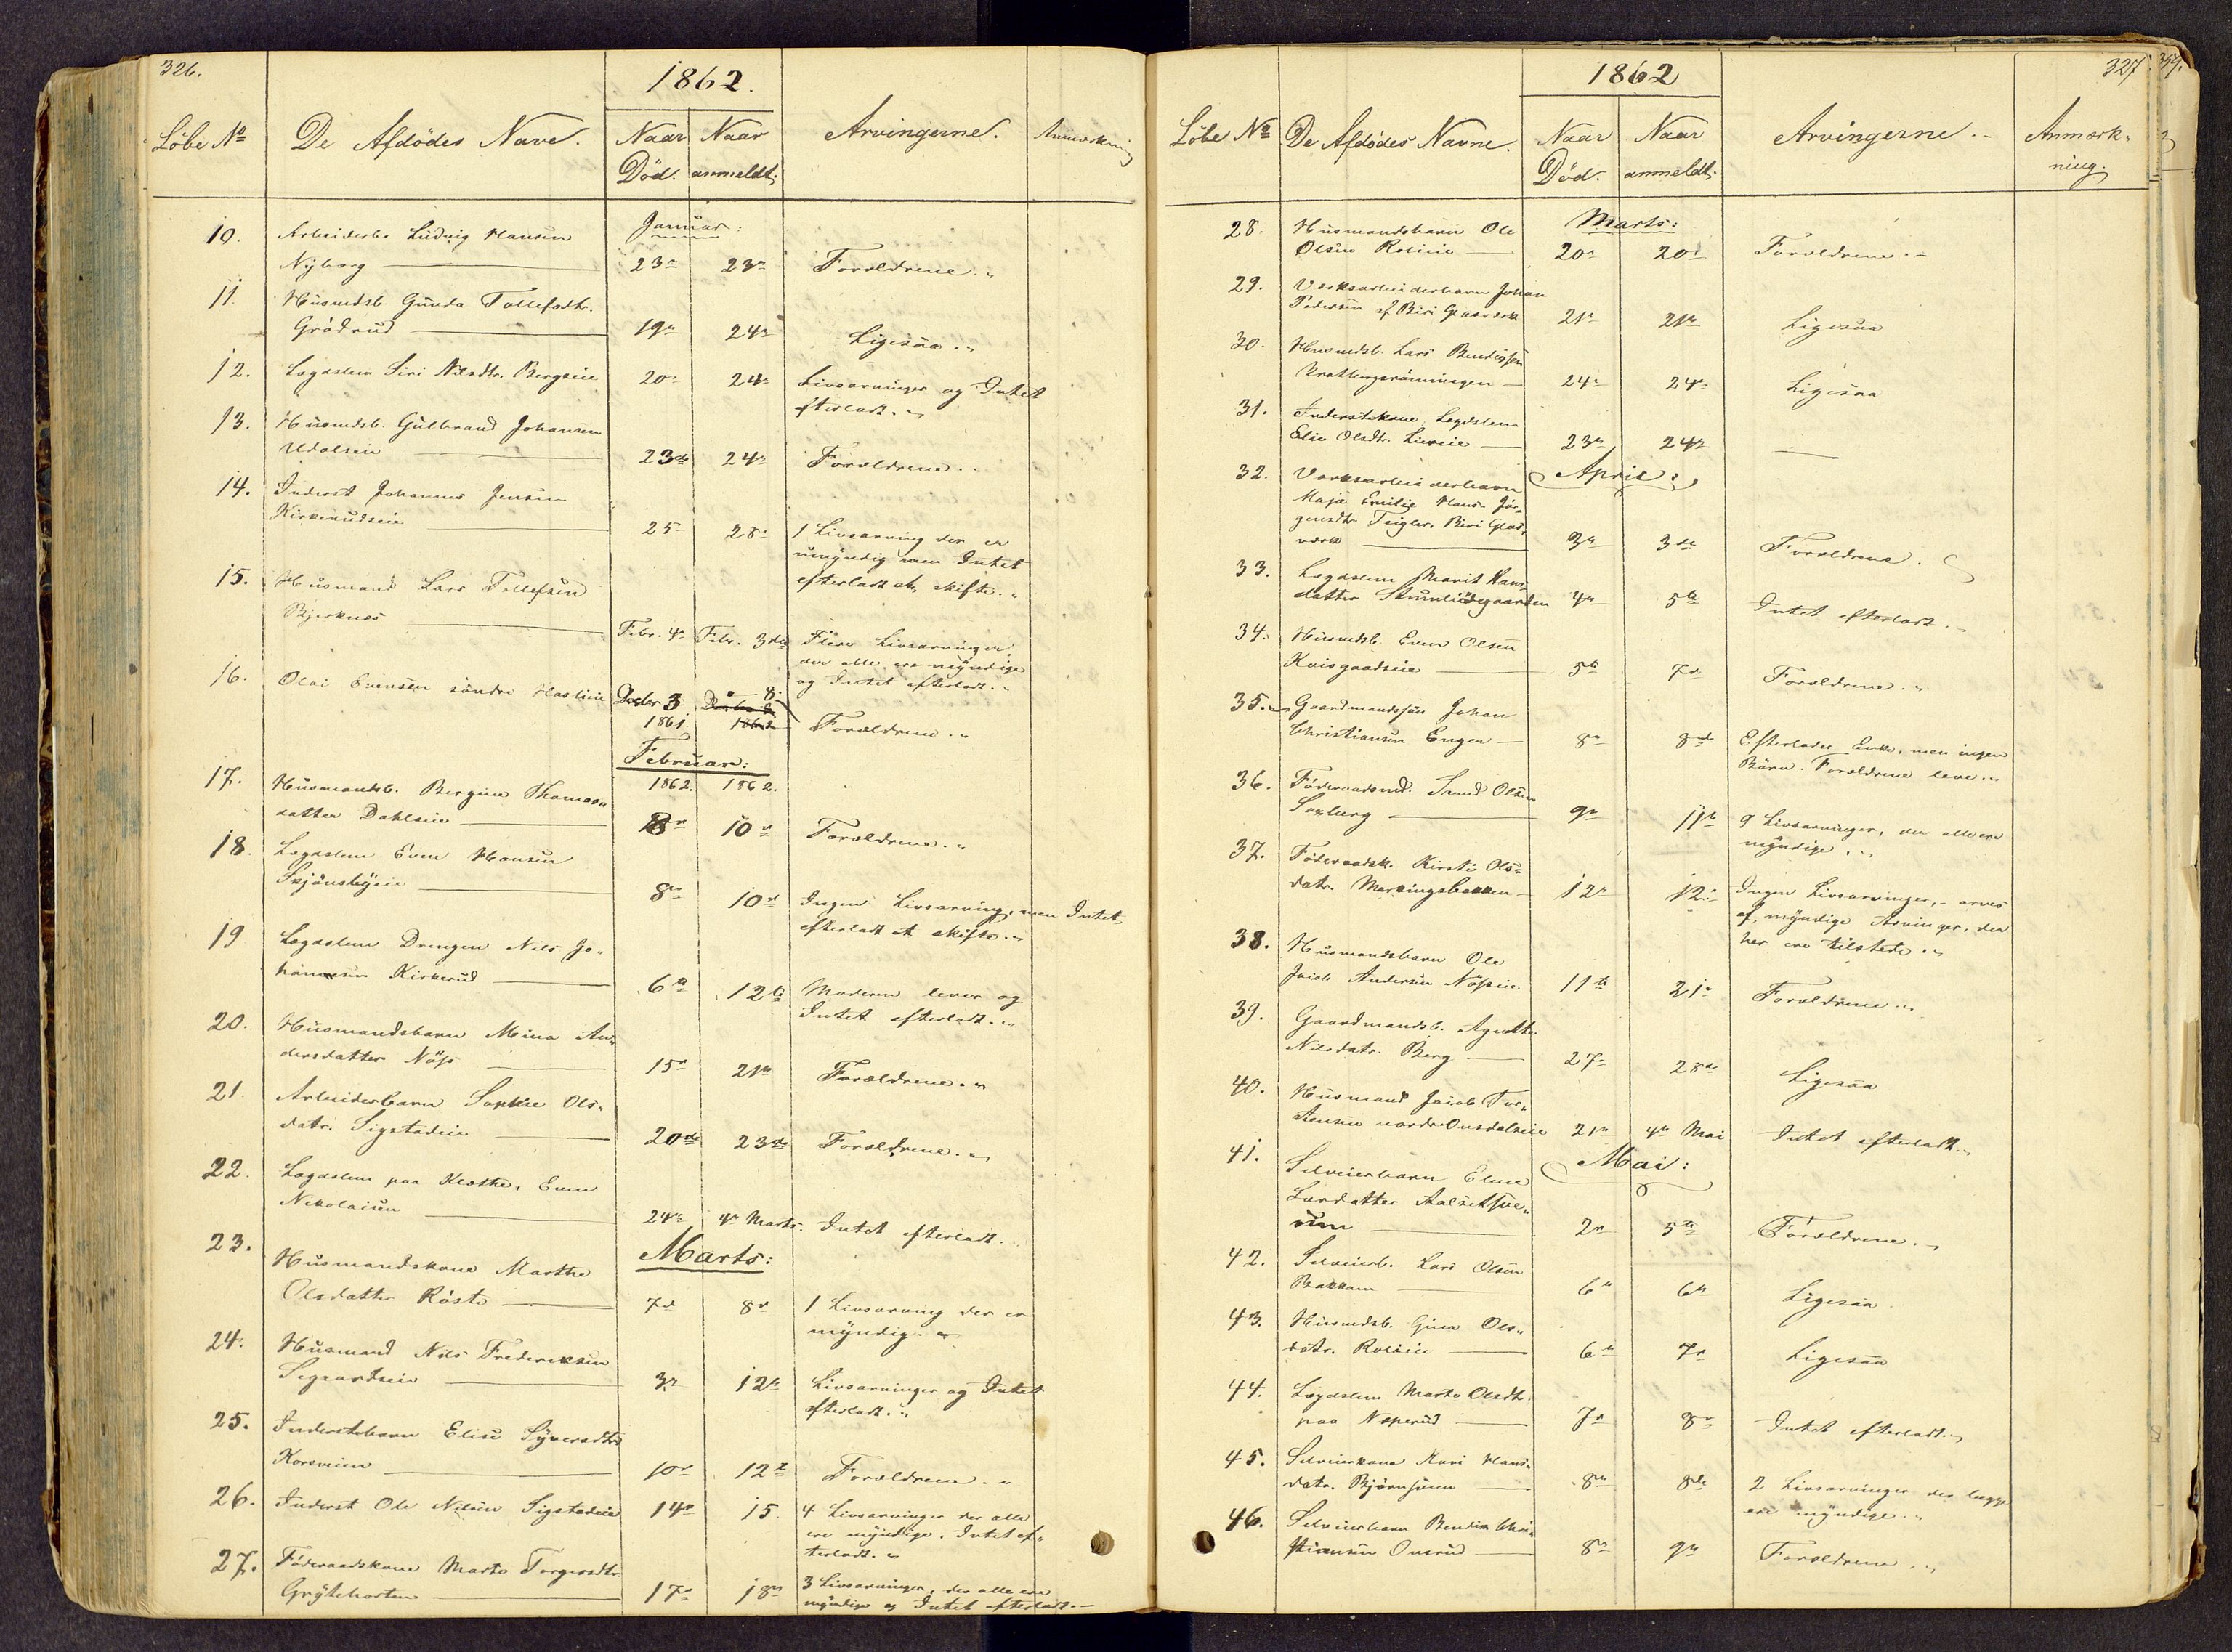 326.
1862.
Löbe No De Afdödes Navn. Naar Död. Naar anmeldt. Arvingerne. Anmærkning
Januar:
10. Arbeiderb. Ludvig Hansen
Nyborg 23de 23de Forældrene.
11. Husmdsb. Gunda Tollefsdtr.
Grödrud 19de 24de Ligesaa.
12. Lægdslem Siri Nilsdtr. Bergseie 20de 24de Livsarvinger og Intet
efterladt.
13. Husmdsb. Gulbrand Johansen
Udalseie 23de 24de Forældrene.
14. Inderst Johannes Jensen
Kirkerudseie 25 28de 1 Livsarving der er
umyndig men Intet
efterladt at skifte.
15. Husmand Lars Tollefsen
Bjerknes Febr. 4de Febr. 3die Flere Livsarvinger,
der alle ere myndige
og Intet efterladt.
16. Olai Evensen söndre Haslieie Decbr 3 8.
1861. 1862 Forældrene.
Februar:
1862. 1862.
17. Husmandsb. Bergine Thomas-
datter Dahlseie 8de 10de Forældrene.
18. Lægdslem Even Hansen
Skjönsbyeie 8de 10de Ingen Livsarving, men Intet
efterladt at skifte.
19 Lægdslem Drengen Nils Jo-
hannesen Kirkerud 6te 12te Moderen lever og
Intet efterladt.
20. Husmandsbarn Mina An-
dersdatter Nöss 15de 21de Forældrene.
21. Arbeiderbarn Sophie Ols-
datr. Sigstadeie 20de 23de Forældrene.
22. Lægdslem paa Klæthe, Even
Nikolaisen 24de 4de Marts. Intet efterladt.
Marts:
23. Husmandskone Marthe
Olsdatter Röste 7de 8de 1 Livsarving der er
myndig.
24. Husmand Nils Frederiksen
3die 12te Livsarvinger og Intet
efterladt.
25. Inderstbarn Elise Syversdtr
Korsveien 10de 12te Forældrene.
26. Inderst Ole Nilsen Sigstadeie 14de 15. 4 Livsarvinger der alle
ere myndige. Intet ef-
terladt.
27. Föderaadskone Marte Torgersdtr.
17de 18de 3 Livsarvinger, der alle ere
myndige og Intet efterladt.
327
1862
Löbe No De Afdödes Navne. Naar Död. Naar anmeldt. Arvingerne. Anmærkning.
Marts:
28. Husmandsbarn Ole
Olsen Roleie 20de 20de Forældrene.
29. Værksarbeiderbarn Johan
Pedersen af Biri Glasværk 21de 21de Ligesaa
30. Husmdsb. Lars Bendixsen
24de 24de Ligesaa
31. Inderstkone, Lægdslem
Elie Olsdtr. Lieseie 23de 24de —
April:
32. Værksarbeiderbarn
Maja Emilie Hans-Jör-
gensdtr Teigler, Biri Glas-
værk 3die 3die Forældrene.
33. Lægdslem Marit Hans-
datter 4de 5te Intet efterladt.
34. Husmdsb. Even Olsen
Kvisgaardseie 5te 7de Forældrene.
35. Gaardmandssön Johan
Christiansen Engen 8de 8de Efterlader Enke, men ingen
Börn. Forældrene leve.
36. Föderaadsmd. Amund Olsen
9de 11te 9 Livsarvinger, der alle ere
myndige.
37. Föderaadsk. Kirsti Ols-
datr. Markingsbakken 12te 12te Ingen Livsarvinger, - arves
af myndige Arvinger, der
her ere tilstede.
38. Husmandsbarn Ole
Jacob Andersen Nösseie 11te 21de Forældrene.
39. Gaardmandsb. Agnethe
Nilsdatr. Berg 27de 28de Ligesaa
40. Husmand Jacob Tor-
stensen nordre Onsdalseie 21de 4de Mai Intet efterladt.
Mai:
41. Selveierbarn Eline
Larsdatter
2den 5te Forældrene.
42. Selveierb. Lars Olsen
Bakken 6te 6te Ligesaa
43. Husmdsb. Gina Ols-
datr. Roleie 6te 7de Ligesaa
44. Lægdslem Marte Olsdtr.
paa Næperud 7de 8de Intet efterladt.
45. Selveierkone Kari Hans-
datr. Björnsveen 8de 8de 2 Livsarvinger der begge
ere myndige.
46. Selveierbarn Bendix Chri-
stiansen Onsrud 8de 9de Forældrene.